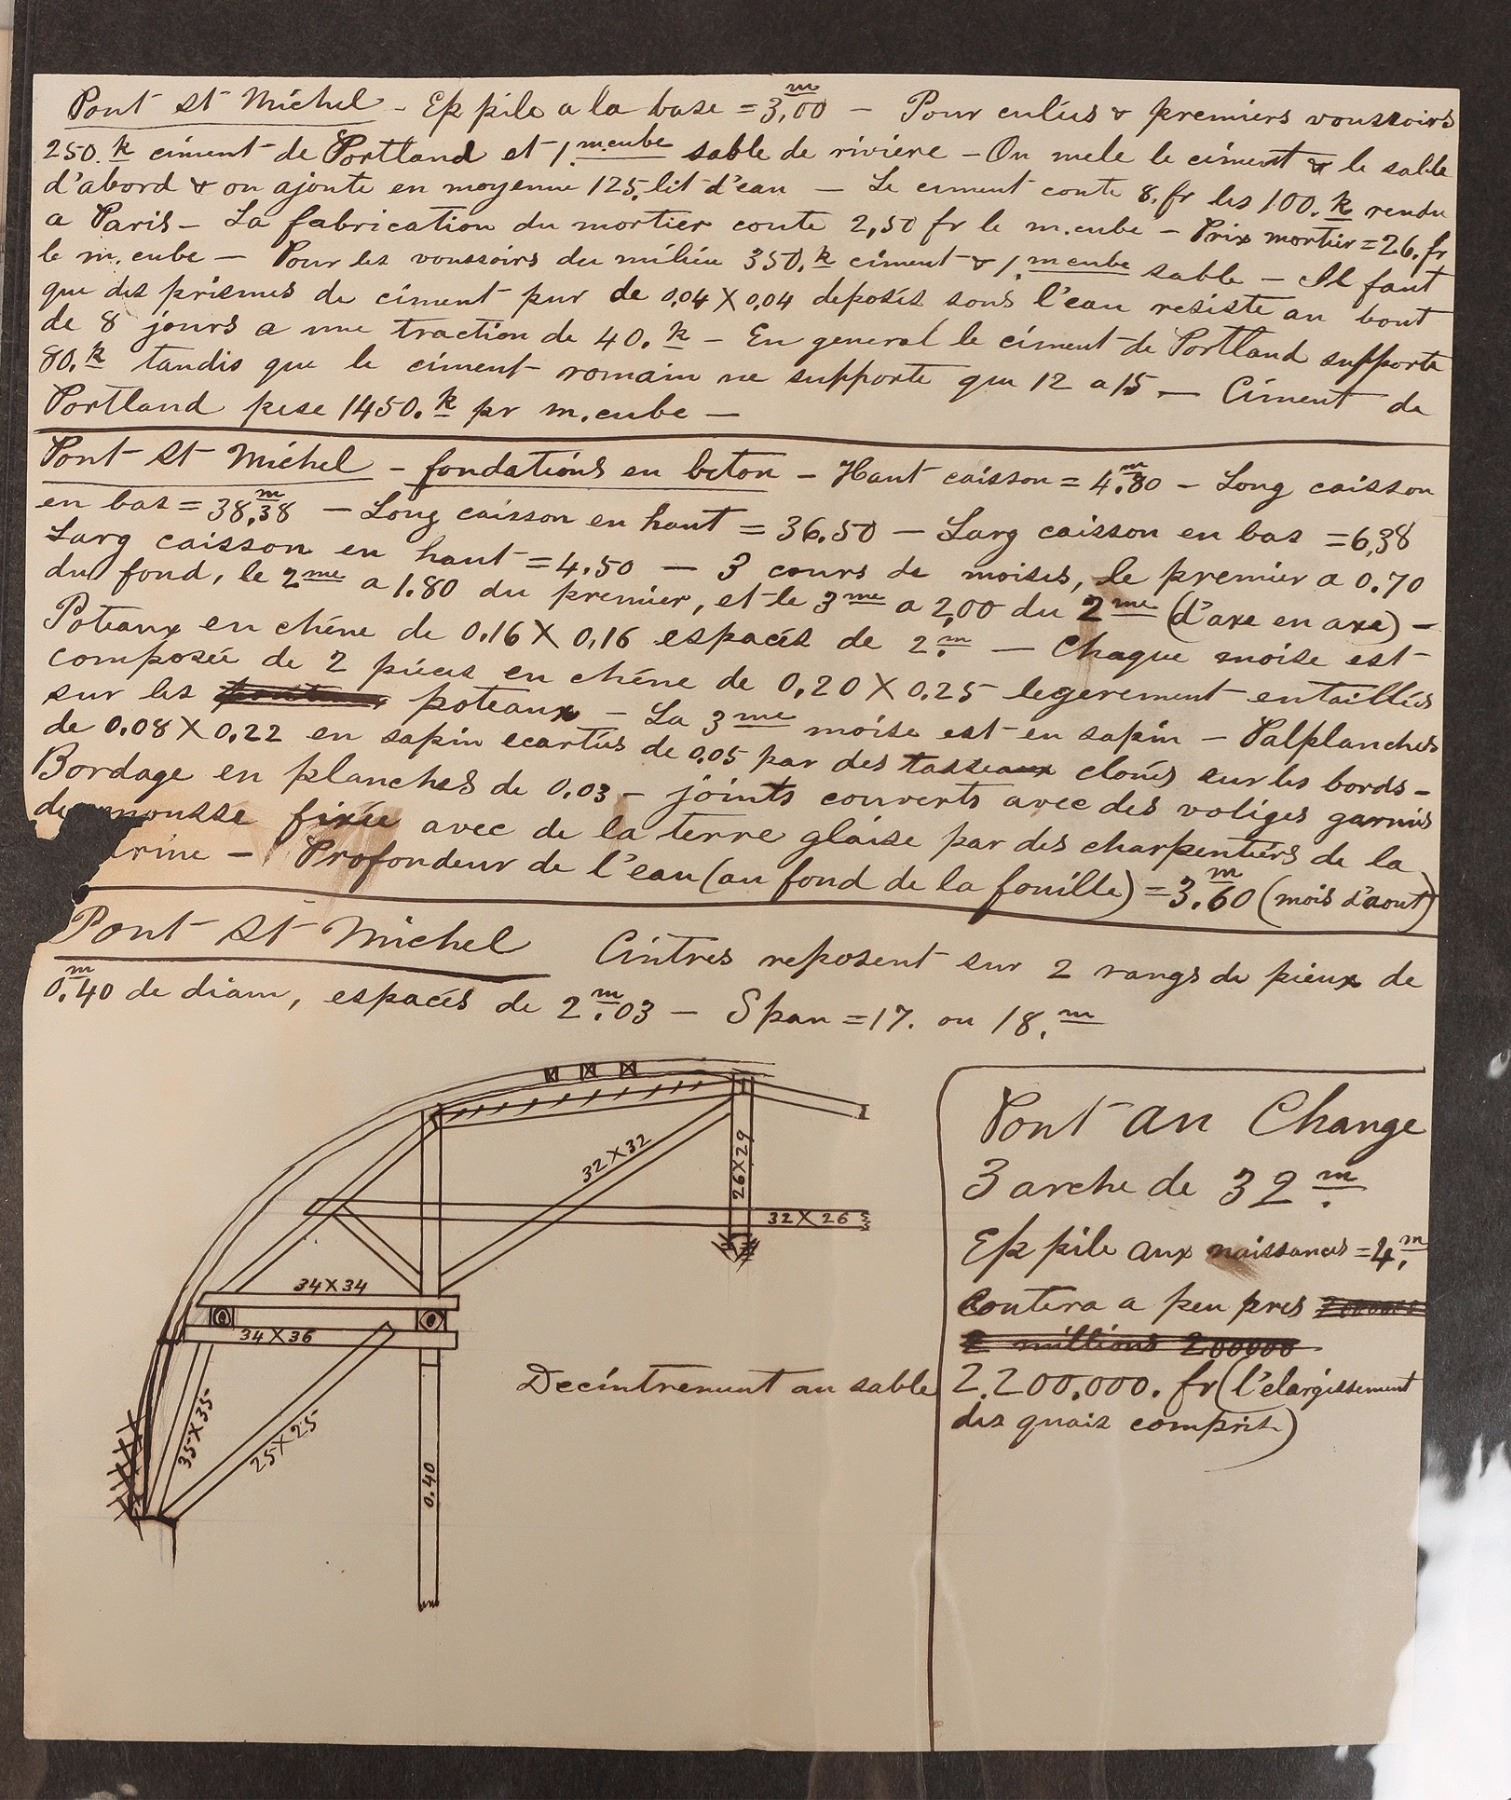 Pont St Michel - Ep pile a la base = 3,00 m - Pour culées & premiers voussoirs
250. k ciment de Portland et 1. m.cube sable de riviere - On mele le ciment & le sable
d'abord & on ajoute en moyenne 125. lit d'eau - Le ciment coute 8. fr les 100. k rendu
a Paris - La fabrication du mortier coute 2,50 fr le m.cube - Prix mortier = 26. fr
le m.cube - Pour les voussoirs du milieu 350. k ciment & 1. m cube sable - Il faut
que des prismes de ciment pur de 0,04 X 0,04 deposés sous l'eau resiste au bout
de 8 jours a une traction de 40. k - En general le ciment de Portland supporte
80. k tandis que le ciment romain ne supporte que 12 a 15 - Ciment de
Portland pese 1450. k pr m.cube -
Pont St Michel - fondations en beton - Haut caisson = 4.80 m - Long caisson
en bas = 38,38 m - Long caisson en haut = 36.50 - Larg caisson en bas = 6,38
Larg caisson en haut = 4.50 - 3 cours de moises, le premier a 0.70
du fond, le 2me a 1.80 du premier, et le 3me a 2,00 du 2me (d'axe en axe) -
Poteaux en chêne de 0.16 X 0,16 espacés de 2. m - Chaque moise est
composée de 2 pieces en chêne de 0,20 X 0.25 legerement entaillés
sur les poteaux - La 3me moise est en sapin - Palplanches
de 0.08 X 0,22 en sapin ecartées de 0,05 par des tasseaux cloués sur les bords -
Bordage en planches de 0.03 - joints couverts avec des voliges garnis
de mousse fixée avec de la terre glaise par des charpentiers de la
rine - Profondeur de l'eau (au fond de la fouille) = 3.60 m (mois d'aout)
Pont St Michel Cintres reposent sur 2 rangs de pieux de
0.40 m de diam, espacés de 2.03 m - Span = 17. ou 18. m
32 X 32
26 X 29
32 X 26
34 X 34
34 X 36
35 X 35
25 X 25
0.40
Decintrement au sable
Pont au Change
3 arche de 32 m.
Ep pile aux naissances = 4. m
Coutera a peu pres
2 millions 200000
2.200.000. fr (l'elargissement
des quais comprit)